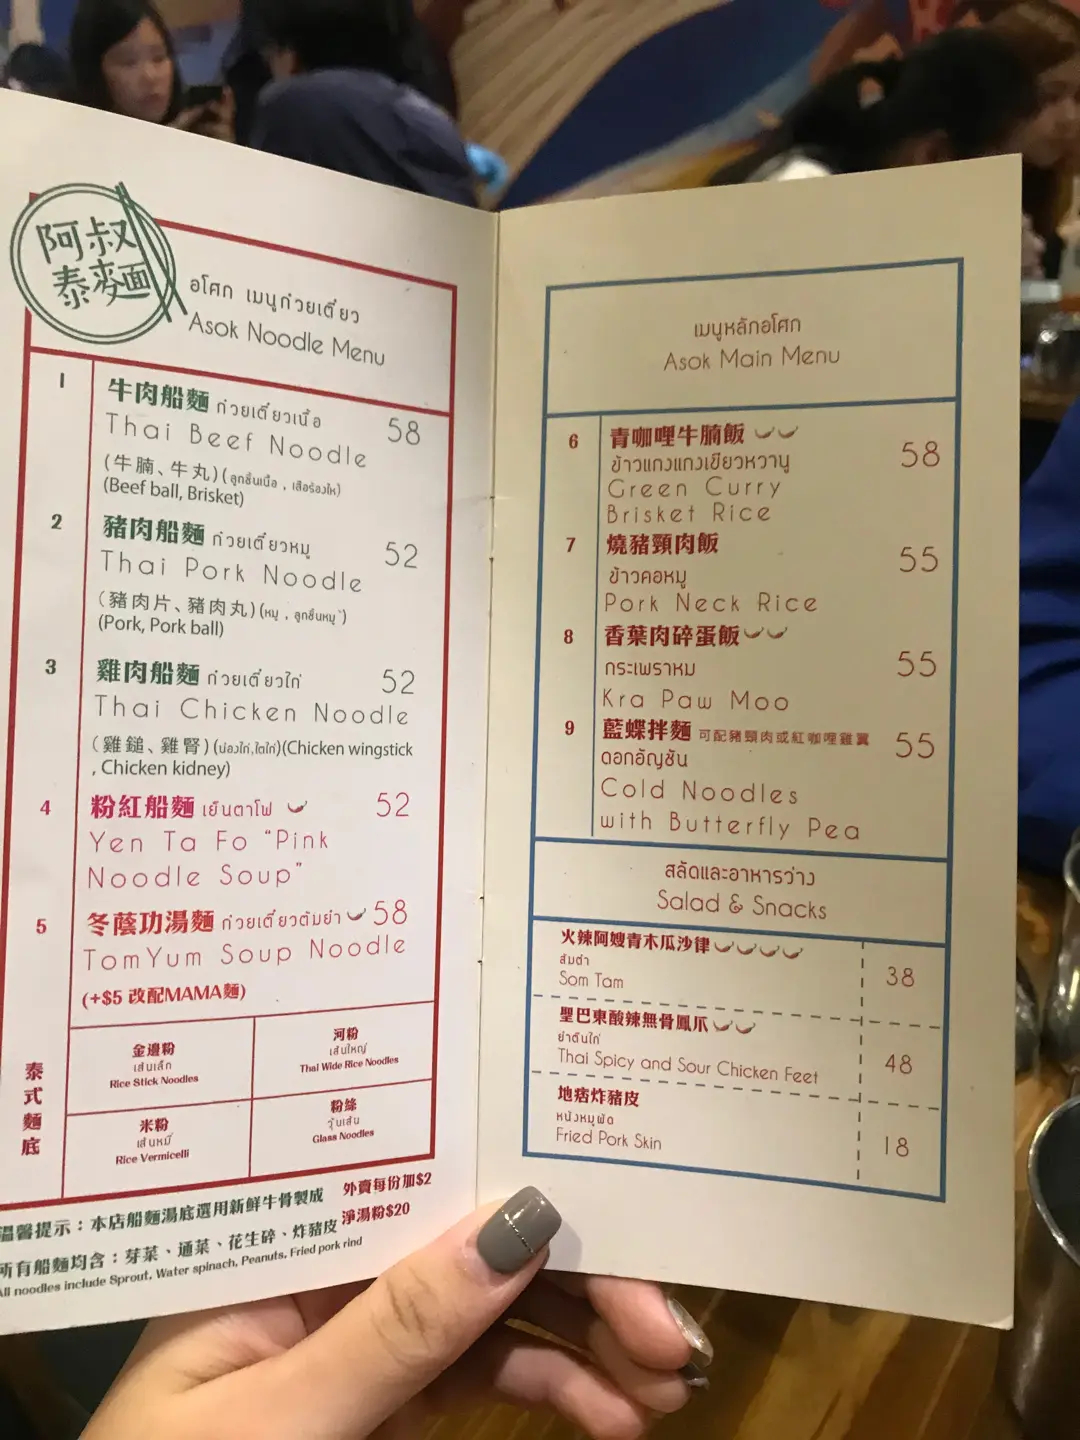 阿叔
泰麵
อโศก เมนูก๋วยเตี๋ยว
Asok Noodle Menu
1
牛肉船麵 ก๋วยเตี๋ยวเนื้อ
58
Thai Beef Noodle
(牛腩、牛丸)(ลูกชิ้นเนื้อ , เสือร้องไห้)
(Beef ball, Brisket)
2
豬肉船麵 ก๋วยเตี๋ยวหมู
52
Thai Pork Noodle
(豬肉片、豬肉丸)(หมู , ลูกชิ้นหมู)
(Pork, Pork ball)
3
雞肉船麵 ก๋วยเตี๋ยวไก่
52
Thai Chicken Noodle
(雞鎚、雞腎)(น่องไก่,ไตไก่)(Chicken wingstick
, Chicken kidney)
4
粉紅船麵 เย็นตาโฟ
52
Yen Ta Fo "Pink
Noodle Soup"
5
冬蔭功湯麵 ก๋วยเตี๋ยวต้มยำ
58
TomYum Soup Noodle
(+$5 改配MAMA麵)
泰式麵底
金邊粉
เส้นเล็ก
Rice Stick Noodles
河粉
เส้นใหญ่
Thai Wide Rice Noodles
米粉
เส้นหมี่
Rice Vermicelli
粉絲
วุ้นเส้น
Glass Noodles
溫馨提示：本店船麵湯底選用新鮮牛骨製成
外賣每份加$2
所有船麵均含：芽菜、通菜、花生碎、炸豬皮
淨湯粉$20
All noodles include Sprout, Water spinach, Peanuts, Fried pork rind
เมนูหลักอโศก
Asok Main Menu
6
青咖哩牛腩飯
58
ข้าวแกงแกงเขียวหวานู
Green Curry
Brisket Rice
7
燒豬頸肉飯
55
ข้าวคอหมู
Pork Neck Rice
8
香葉肉碎蛋飯
55
กระเพราหม
Kra Paw Moo
9
藍蝶拌麵 可配豬頸肉或紅咖哩雞翼
55
ดอกอัญชัน
Cold Noodles
with Butterfly Pea
สลัดและอาหารว่าง
Salad & Snacks
火辣阿嫂青木瓜沙律
38
ส้มตำ
Som Tam
聖巴東酸辣無骨鳳爪
48
ยำตีนไก่
Thai Spicy and Sour Chicken Feet
地痞炸豬皮
18
หนังหมูผัด
Fried Pork Skin